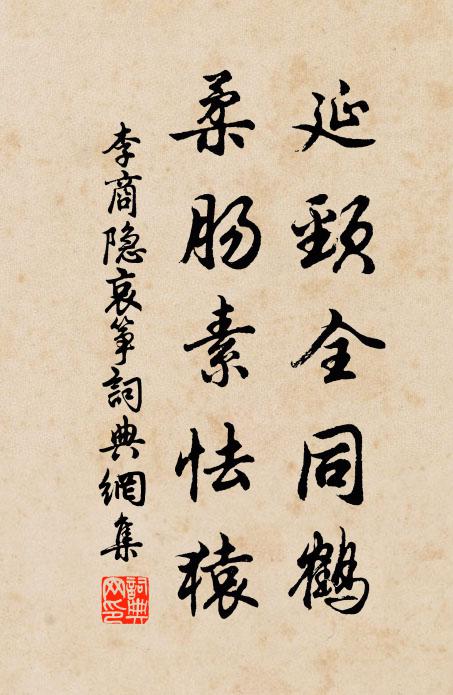 延頸全同鶴
柔肠素怯猿
李商隐哀筝詞典網集
詞典網印